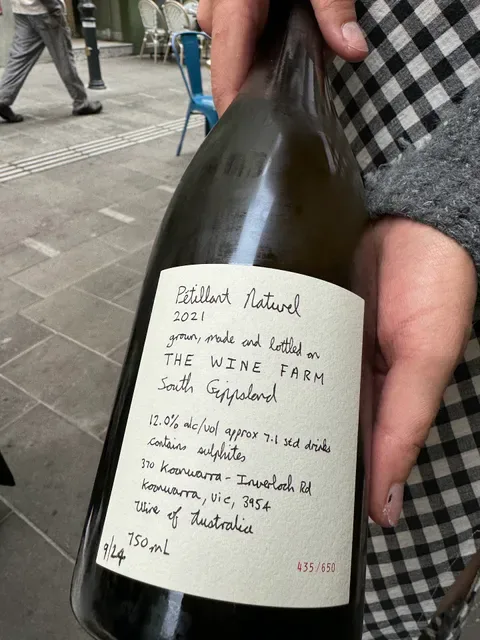 Pétillant Naturel
2021
grown, made and bottled on
THE WINE FARM
South Gippsland
12.0% alc/vol approx 7.1 std drinks
contains sulphites
370 Koonwarra - Inverloch Rd
Koonwarra, Vic, 3954
Wine of Australia
750mL
9/24
435/650